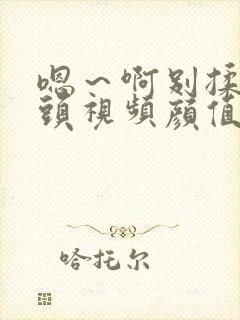 嗯～啊别揉
頭視頻顔值
哈托尔